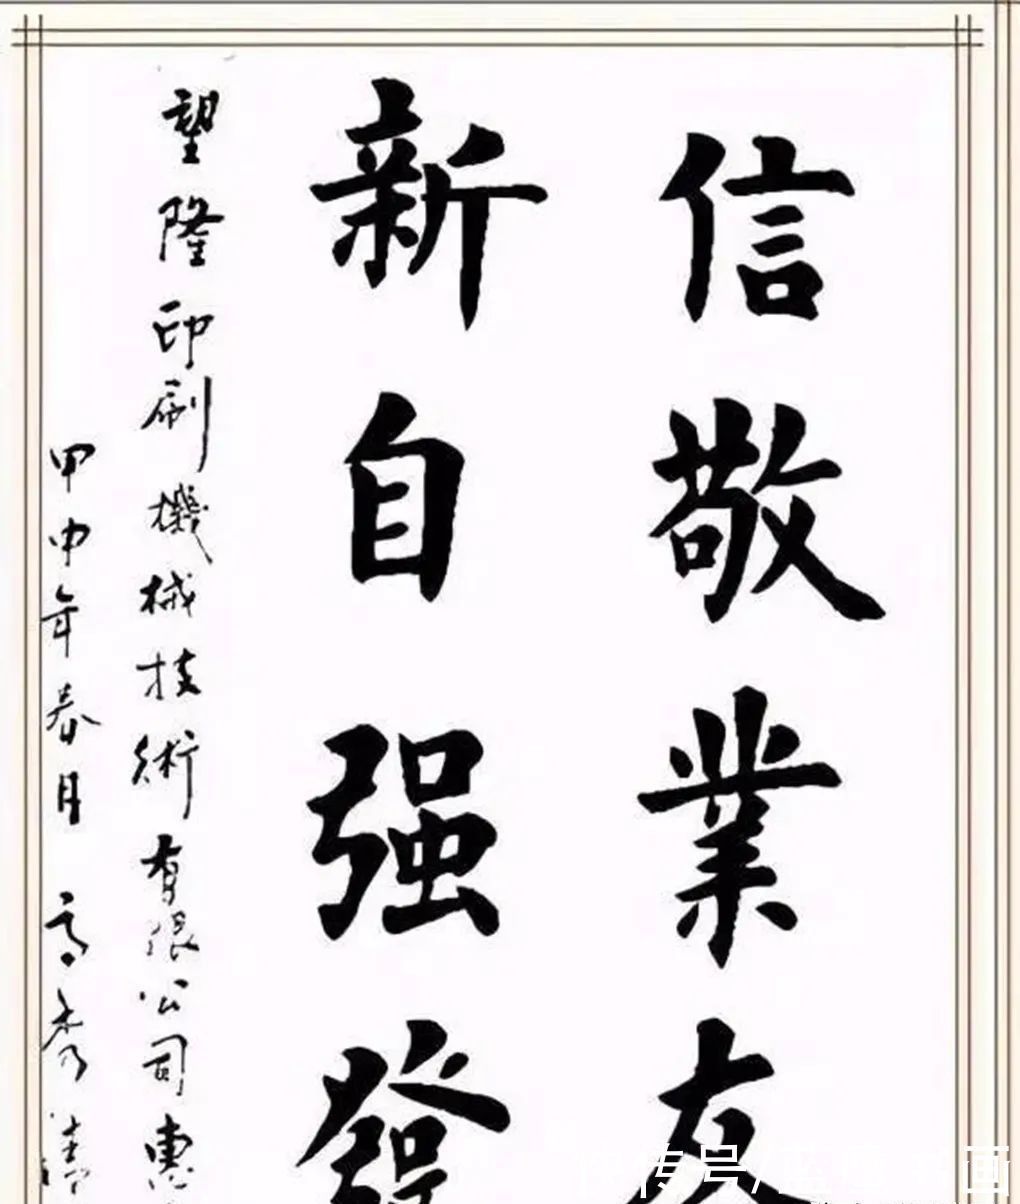 信敬業友
新自强發
望隆印刷機械技術有限公司惠
甲申年春月 高秀清